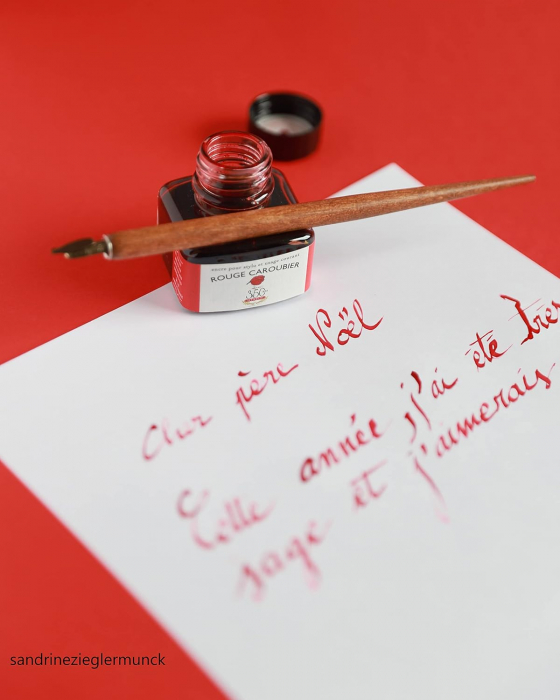 encre pour stylo et usage courant
ROUGE CAROUBIER
350
Cher père Noël
Cette année j'ai été très
sage et j'aimerais
sandrinezieglermunck